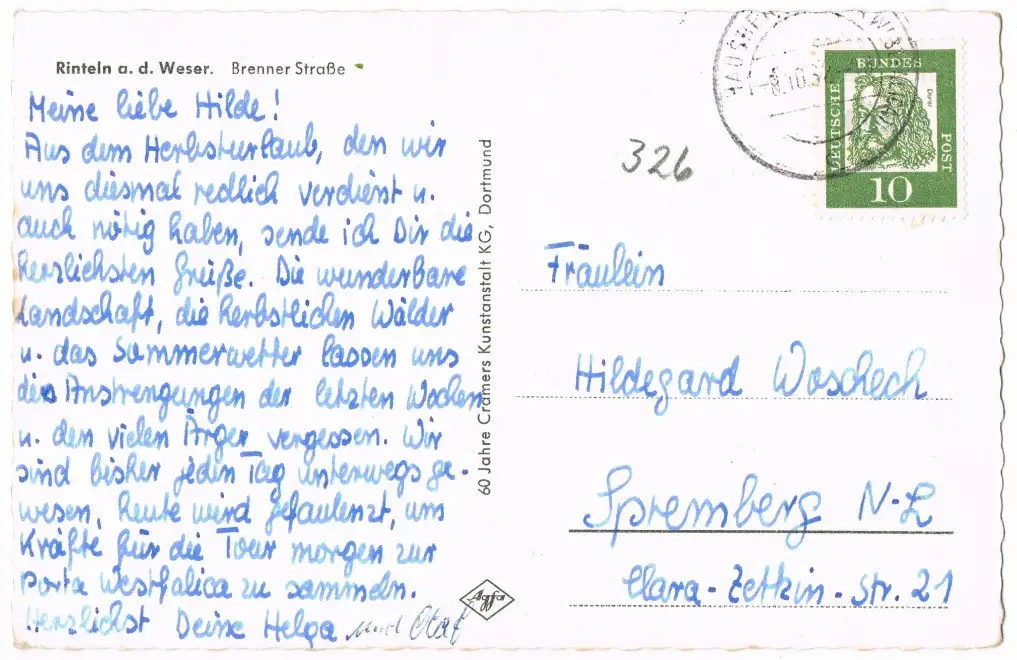 Rinteln a. d. Weser. Brenner Straße
Meine liebe Hilde!
Aus dem Herbsturlaub, den wir
uns diesmal redlich verdient u.
auch nötig haben, sende ich Dir die
herzlichsten Grüße. Die wunderbare
Landschaft, die herbstlichen Wälder
u. das Sommerwetter lassen uns
die Anstrengungen der letzten Wochen
u. den vielen Ärger vergessen. Wir
sind bisher jeden Tag unterwegs ge-
wesen, heute wird gefaulenzt, um
Kräfte für die Tour morgen zur
Porta Westfalica zu sammeln.
Herzlichst Deine Helga und Olaf
60 Jahre Cramers Kunstanstalt KG, Dortmund
Agfa
326
DEUTSCHE
BUNDES
POST
Dürer
10
Fräulein
Hildegard Woschech
Spremberg N-L
Clara-Zetkin-Str. 21